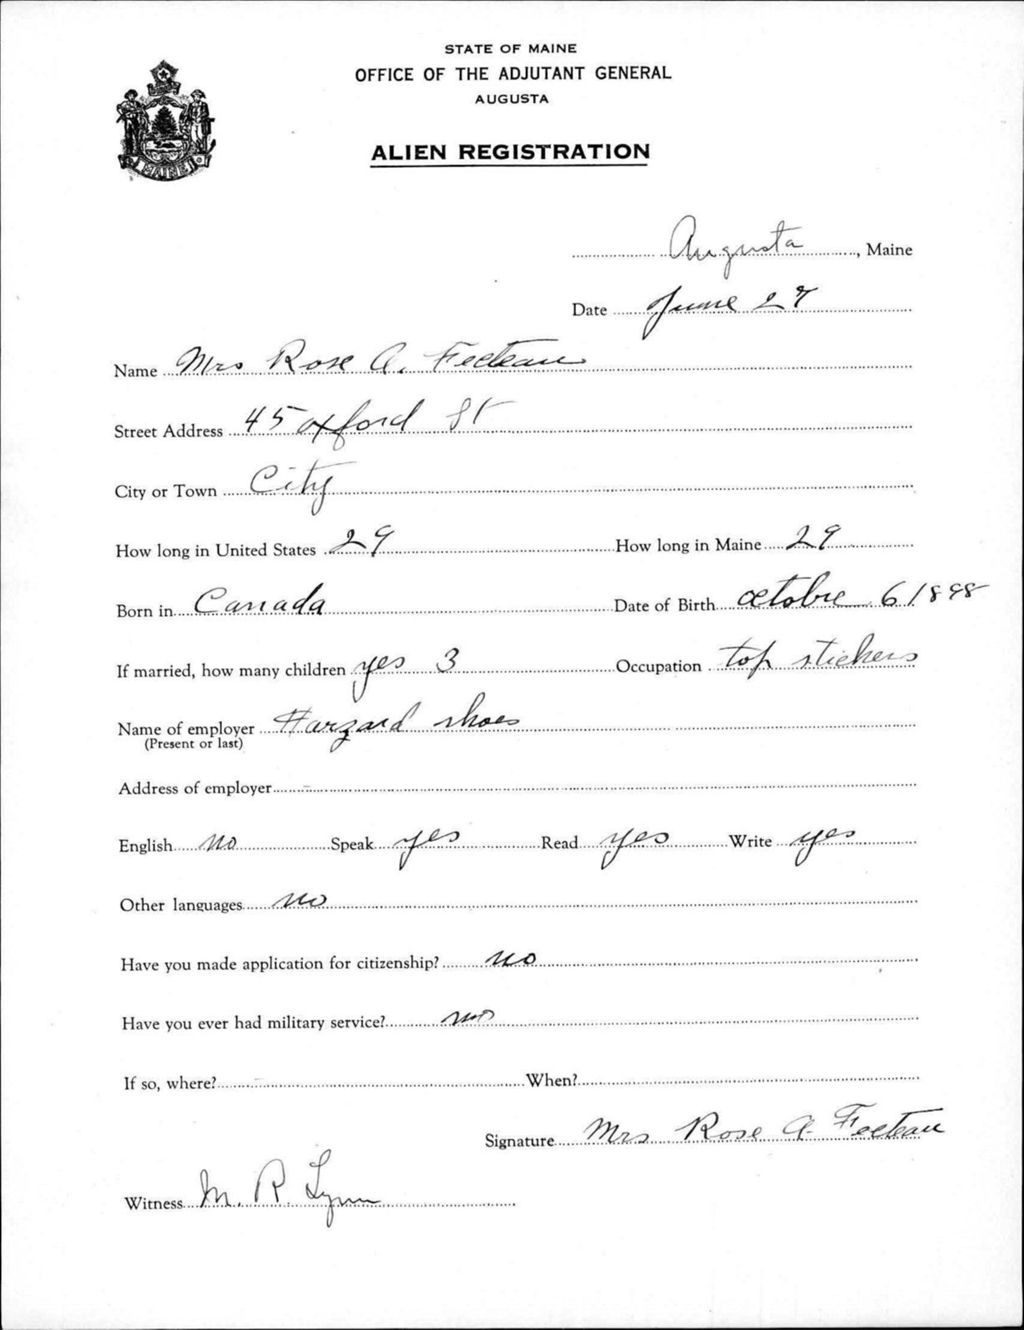 STATE OF MAINE
OFFICE OF THE ADJUTANT GENERAL
AUGUSTA
ALIEN REGISTRATION
MAINE
Augusta, Maine
Date June 27
Name Mrs Rose A. Fecteau
Street Address 45 oxford St
City or Town City
How long in United States 29 How long in Maine 29
Born in Canada Date of Birth octobre 6 1898
If married, how many children yes 3 Occupation top stichers
Name of employer Harzard shoes
(Present or last)
Address of employer -
English no Speak yes Read yes Write yes
Other languages no
Have you made application for citizenship? no
Have you ever had military service? no
If so, where? - When?
Signature Mrs Rose A Fecteau
Witness M. R. Lynn